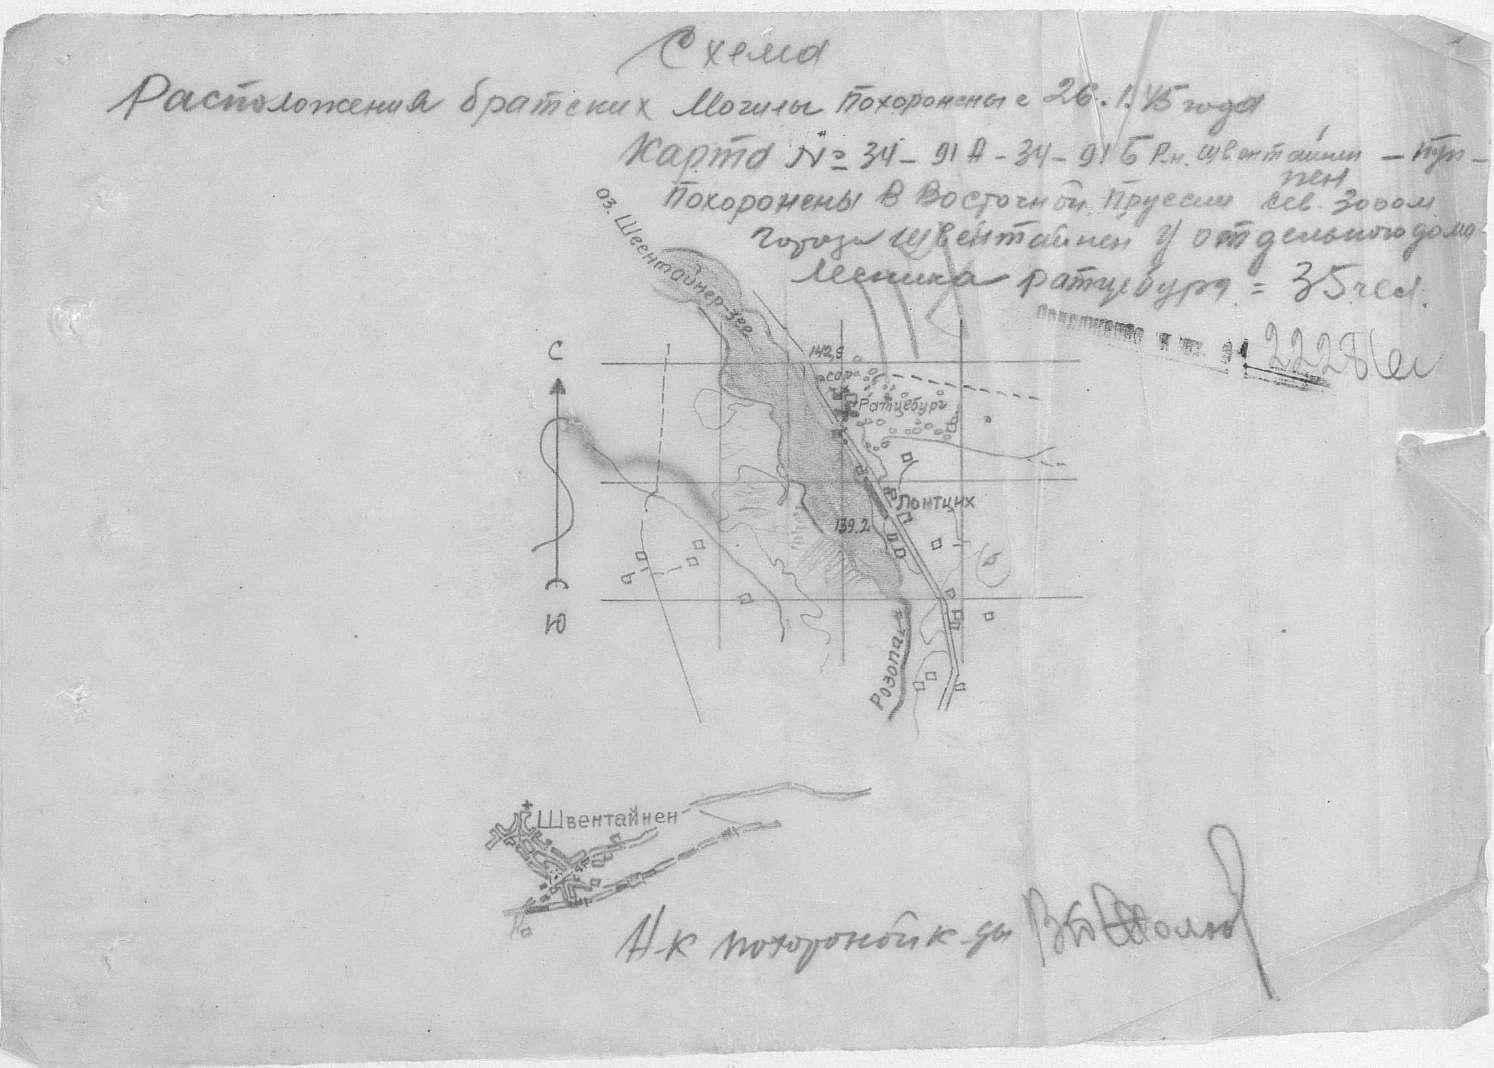 Схема
Расположения братских Могилы Похоронены с 26.1.45 года
Карта № 34-91А-34-91Б Р.н. Швентайнен -
Похоронены В Восточной Пруссии сев.
города Швентайнен У отдельного дома
Лесника Ратцебург = 35 чел.
222
оз. Швентайнер-зее
С
142,9
сар.
Ратцебург
Лонтцих
139.2
Ю
Розопа
Швентайнен
Н-к похороной к-ды